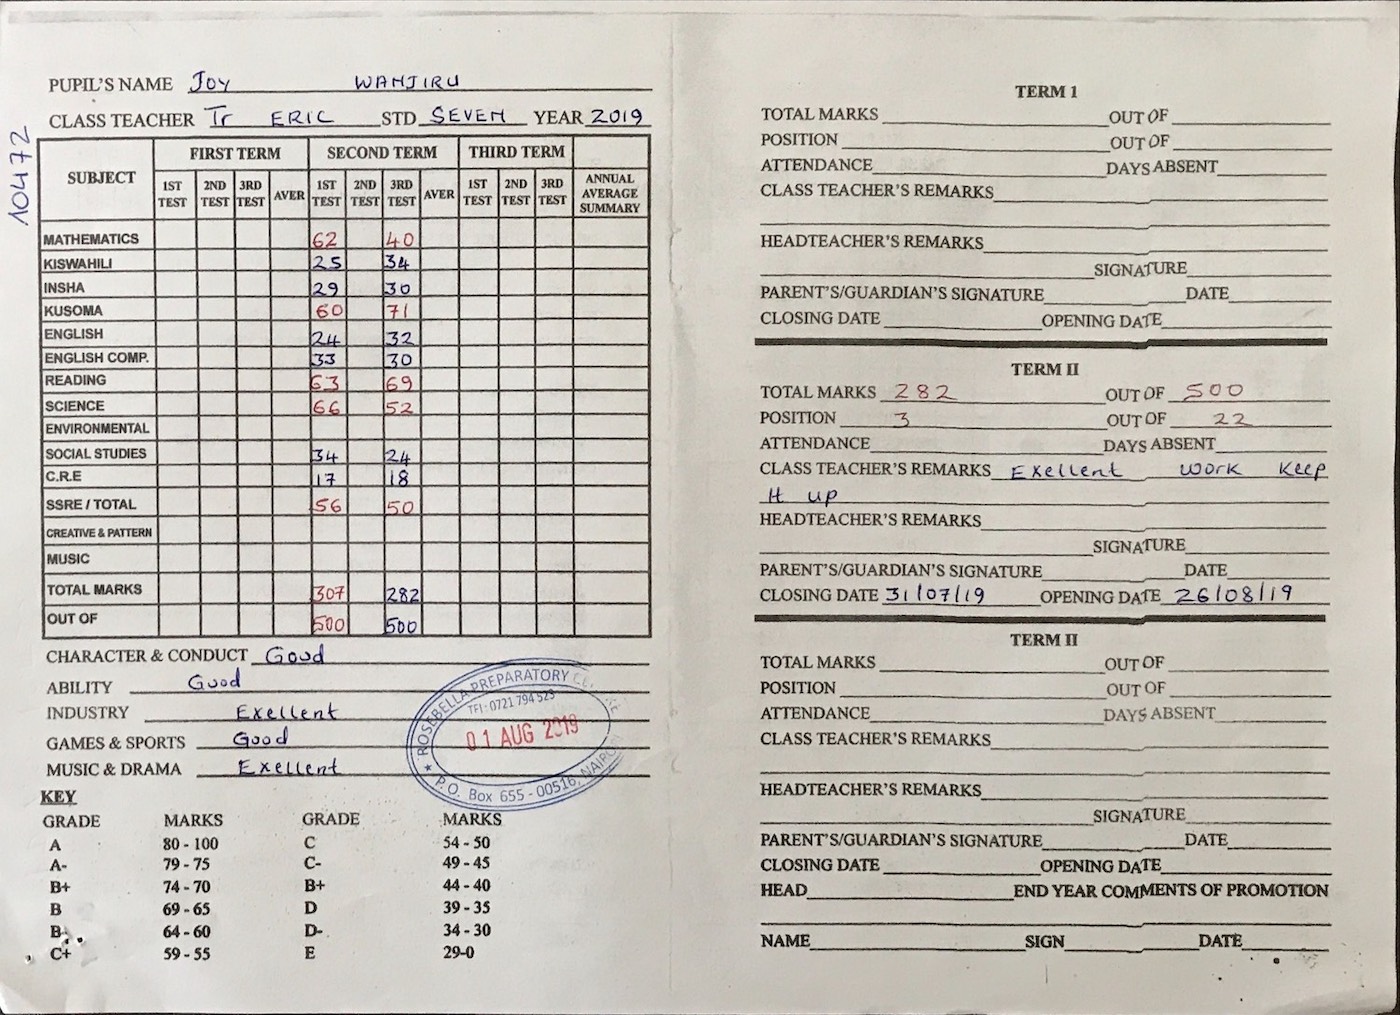 PUPIL'S NAME Joy WANJIRU
CLASS TEACHER Tr ERIC STD SEVEN YEAR 2019
10472
SUBJECT FIRST TERM SECOND TERM THIRD TERM ANNUAL AVERAGE SUMMARY
1ST TEST 2ND TEST 3RD TEST AVER 1ST TEST 2ND TEST 3RD TEST AVER 1ST TEST 2ND TEST 3RD TEST
MATHEMATICS 62 40
KISWAHILI 25 34
INSHA 29 30
KUSOMA 60 71
ENGLISH 24 32
ENGLISH COMP. 33 30
READING 63 69
SCIENCE 66 52
ENVIRONMENTAL
SOCIAL STUDIES 34 24
C.R.E 17 18
SSRE / TOTAL 56 50
CREATIVE & PATTERN
MUSIC
TOTAL MARKS 307 282
OUT OF 500 500
CHARACTER & CONDUCT Good
ABILITY Good
INDUSTRY Exellent
GAMES & SPORTS Good
MUSIC & DRAMA Exellent
ROSEBELLA PREPARATORY
TEL: 0721 794 523
01 AUG 2019
P.O. Box 655 - 00516, NAIROBI
KEY
GRADE MARKS GRADE MARKS
A 80 - 100 C 54 - 50
A- 79 - 75 C- 49 - 45
B+ 74 - 70 B+ 44 - 40
B 69 - 65 D 39 - 35
B- 64 - 60 D- 34 - 30
C+ 59 - 55 E 29-0
TERM 1
TOTAL MARKS OUT OF
POSITION OUT OF
ATTENDANCE DAYS ABSENT
CLASS TEACHER'S REMARKS
HEADTEACHER'S REMARKS
SIGNATURE
PARENT'S/GUARDIAN'S SIGNATURE DATE
CLOSING DATE OPENING DATE
TERM II
TOTAL MARKS 282 OUT OF 500
POSITION 3 OUT OF 22
ATTENDANCE DAYS ABSENT
CLASS TEACHER'S REMARKS Exellent work keep
it up
HEADTEACHER'S REMARKS
SIGNATURE
PARENT'S/GUARDIAN'S SIGNATURE DATE
CLOSING DATE 31/07/19 OPENING DATE 26/08/19
TERM II
TOTAL MARKS OUT OF
POSITION OUT OF
ATTENDANCE DAYS ABSENT
CLASS TEACHER'S REMARKS
HEADTEACHER'S REMARKS
SIGNATURE
PARENT'S/GUARDIAN'S SIGNATURE DATE
CLOSING DATE OPENING DATE
HEAD END YEAR COMMENTS OF PROMOTION
NAME SIGN DATE